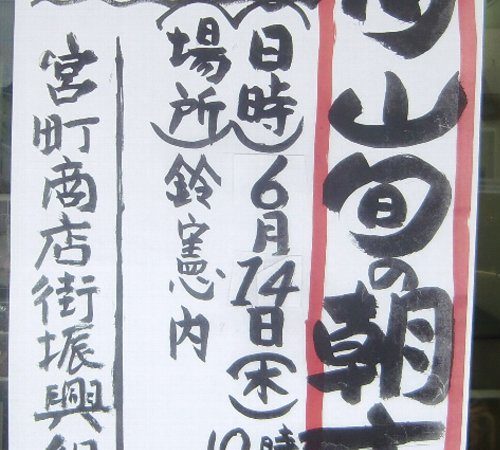 山旬の朝
(日時)6月14日(木)
10時
(場所)鈴憲内
宮町商店街振興